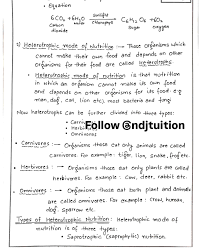 • Equation
6CO2 + 6H2O sunlight chlorophyll C6H12O6 + 6O2
Carbon dioxide water sugar oxygen
2) Heterotrophic mode of Nutrition → Those organisms which
cannot make their own food and depends on other
organisms for their food are called Heterotrophs
• Heterotrophic mode of nutrition is that nutrition
in which an organism cannot make its own food
and depends on other organisms for its food e.g
man, dog, cat, lion etc), most bacteria and fungi
Now heterotrophs can be further divided into three types-
• Carni
• Herbi
• Omniv
Follow @ndjtuition
• Carnivores → Organisms those eat only animals are called
carnivores. For example: tiger, lion, snake, frog etc.
• Herbivores → Organisms those eat only plants are called
herbivores. For example: Cow, deer, rabbit etc.
• Omnivores → Organisms those eat both plant and animals
are called omnivores. For example: crow, human,
dog, sparrow etc.
Types of Heterotrophic Nutrition: Heterotrophic mode of
nutrition is of three types-
• Saprotrophic (saprophytic) nutrition